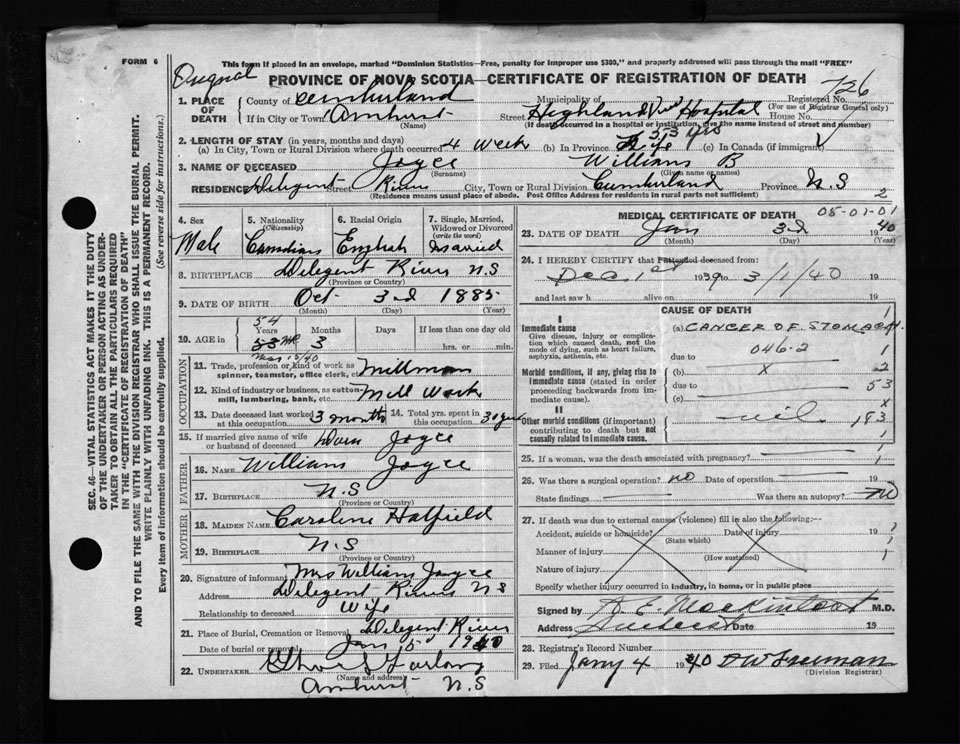 FORM 6
This form if placed in an envelope, marked "Dominion Statistics—Free, penalty for improper use $300," and properly addressed will pass through the mail "FREE"
Original
PROVINCE OF NOVA SCOTIA—CERTIFICATE OF REGISTRATION OF DEATH
726
1. PLACE OF DEATH
County of Cumberland Municipality of Registered No.
(For use of Registrar General only)
If in City or Town Amherst Street Highland View Hospital House No.
(Name) (If death occurred in a hospital or institution, give the name instead of street and number)
2. LENGTH OF STAY (in years, months and days)
(a) In City, Town or Rural Division where death occurred 4 Week (b) In Province Life 53 yrs (c) In Canada (if immigrant)
3. NAME OF DECEASED Joyce William B
(Surname) (Given name or names)
RESIDENCE Diligent Street River City, Town or Rural Division Cumberland Province N.S
(Residence means usual place of abode. Post Office Address for residents in rural parts not sufficient) 2
4. Sex 5. Nationality (Citizenship) 6. Racial Origin 7. Single, Married, Widowed or Divorced (write the word)
Male Canadian English Married
8. BIRTHPLACE Delegent River N.S
(Province or Country)
9. DATE OF BIRTH Oct 3rd 1885
(Month) (Day) (Year)
10. AGE in 54 Years 53 3 Months Days If less than one day old
hrs. or min.
OCCUPATION
11. Trade, profession or kind of work as spinner, teamster, office clerk, etc. Millman
12. Kind of industry or business, as cotton-mill, lumbering, bank, etc. Mill Work
13. Date deceased last worked at this occupation 3 months 14. Total yrs. spent in this occupation 30 years
15. If married give name of wife or husband of deceased Joyce
FATHER
16. NAME William Joyce
17. BIRTHPLACE N.S
(Province or Country)
MOTHER
18. MAIDEN NAME Caroline Hatfield
19. BIRTHPLACE N.S
(Province or Country)
20. Signature of informant Mrs William Joyce
Address Delegent River N S
Relationship to deceased Wife
21. Place of Burial, Cremation or Removal Delegent River
Date of burial or removal Jan 5 1940
22. UNDERTAKER Furlong
(Name and address)
Amherst N.S
MEDICAL CERTIFICATE OF DEATH
05-01-01
23. DATE OF DEATH Jan 3rd 1940
(Month) (Day) (Year)
24. I HEREBY CERTIFY that I attended deceased from:
Dec. 1st 1939 to 3/1/40 19
and last saw h alive on 19
CAUSE OF DEATH
I
Immediate cause
Give disease, injury or complication which caused death, not the mode of dying, such as heart failure, asphyxia, asthenia, etc.
(a) CANCER OF STOMACH.
due to 046-2
Morbid conditions, if any, giving rise to immediate cause (stated in order proceeding backwards from immediate cause).
(b) x
due to 53
(c)
II
Other morbid conditions (if important) contributing to death but not causally related to immediate cause. nil 183
25. If a woman, was the death associated with pregnancy?
26. Was there a surgical operation? no Date of operation
State findings Was there an autopsy? no
27. If death was due to external causes (violence) fill in also the following:—
Accident, suicide or homicide? Date of injury 19
(State which)
Manner of injury
(How sustained)
Nature of injury
Specify whether injury occurred in industry, in home, or in public place
Signed by Mackintosh M.D.
Address Amherst Date 19
28. Registrar's Record Number
29. Filed Jany 4 1940 Freeman
(Division Registrar)
SEC. 46—VITAL STATISTICS ACT MAKES IT THE DUTY
OF THE UNDERTAKER OR PERSON ACTING AS UNDER-
TAKER TO OBTAIN ALL THE PARTICULARS REQUIRED
IN THE "CERTIFICATE OF REGISTRATION OF DEATH"
AND TO FILE THE SAME WITH THE DIVISION REGISTRAR WHO SHALL ISSUE THE BURIAL PERMIT.
WRITE PLAINLY WITH UNFADING INK. THIS IS A PERMANENT RECORD.
Every item of information should be carefully supplied. (See reverse side for instructions.)